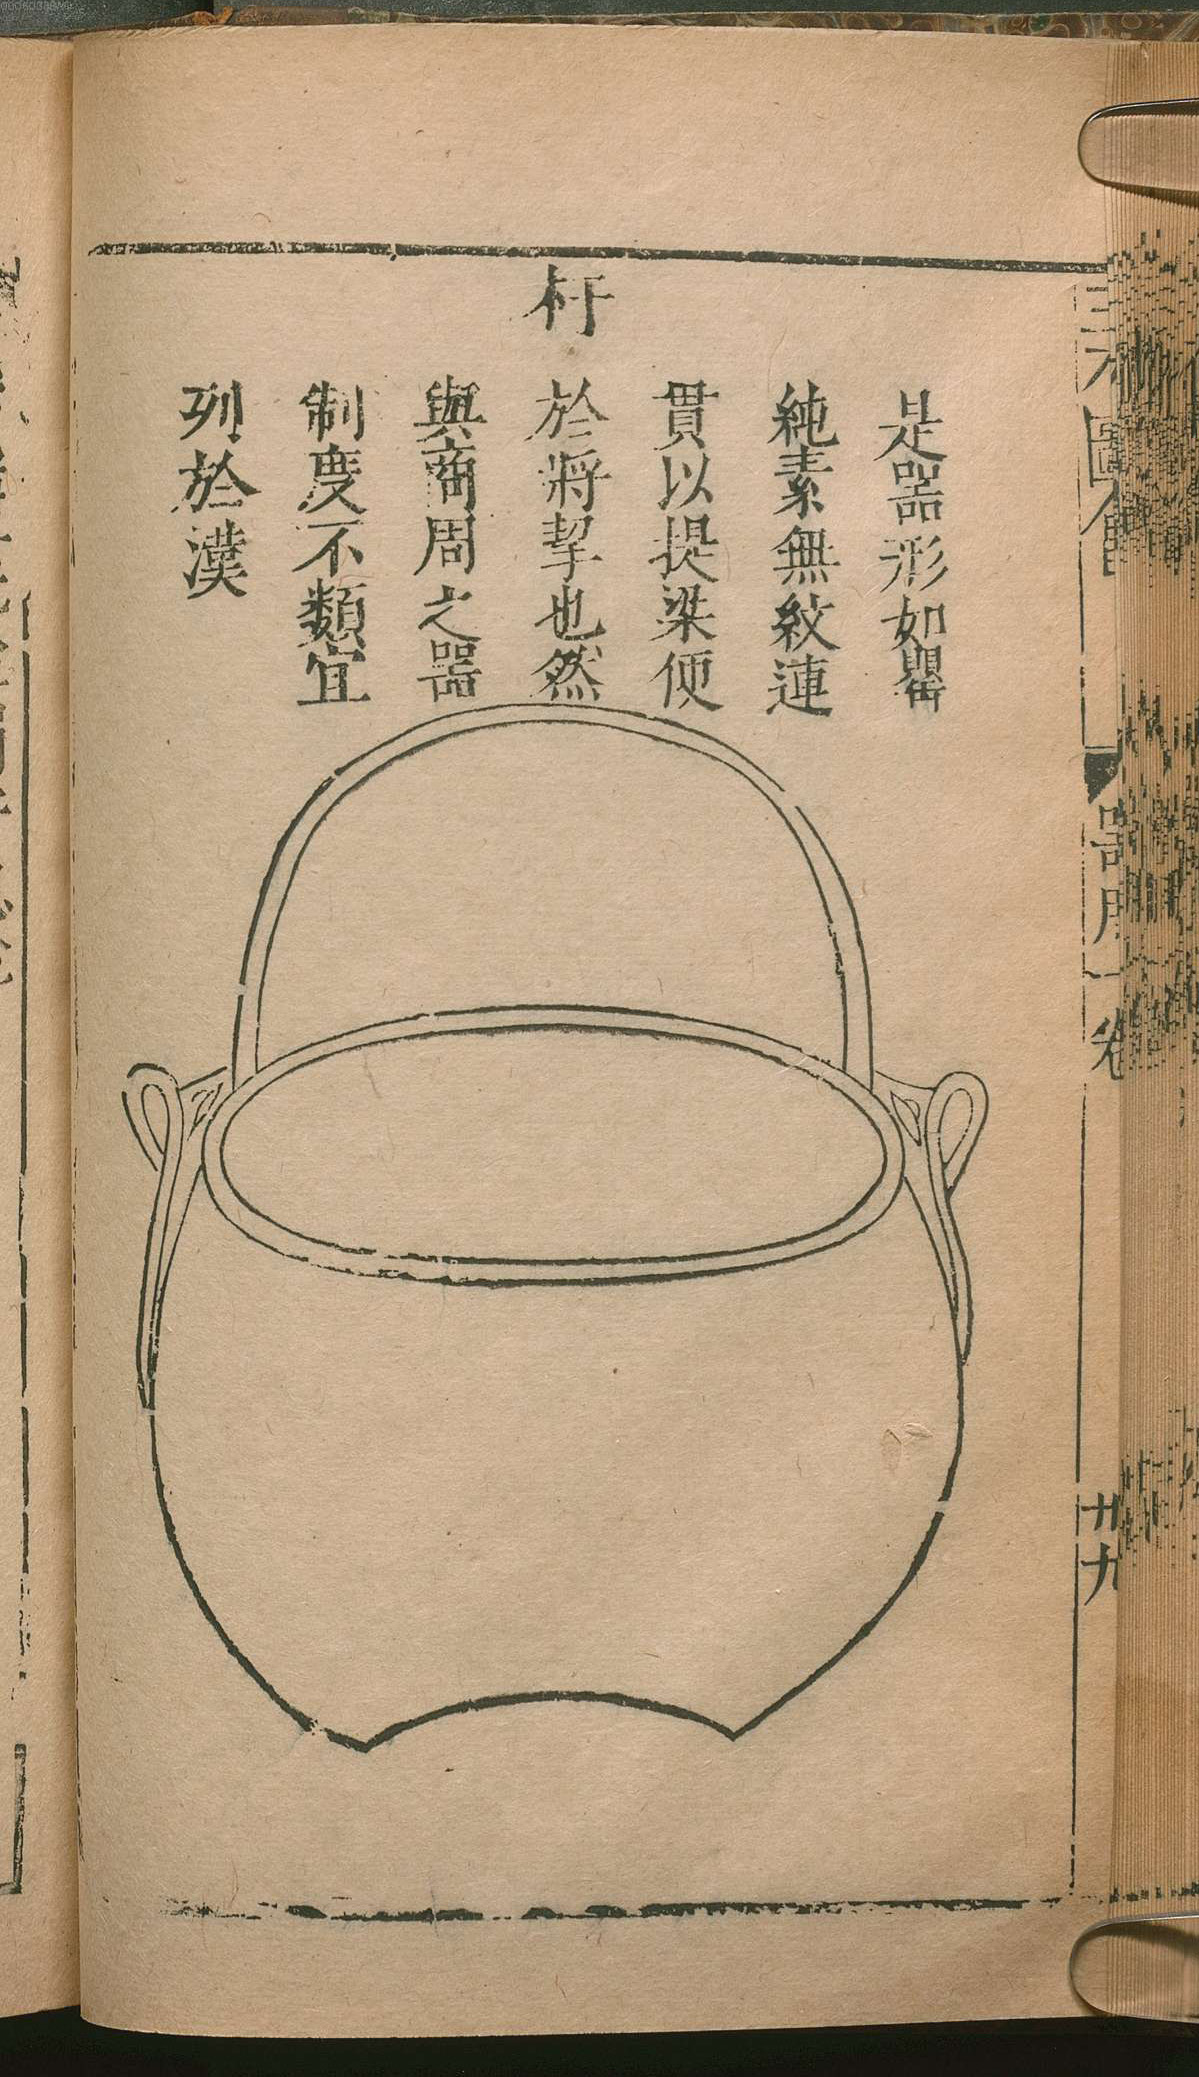 杅
是器形如罌
純素無紋連
貫以提梁便
於將挈也然
與商周之器
制度不類宜
列於漢
三才圖會
器用一卷
廿九